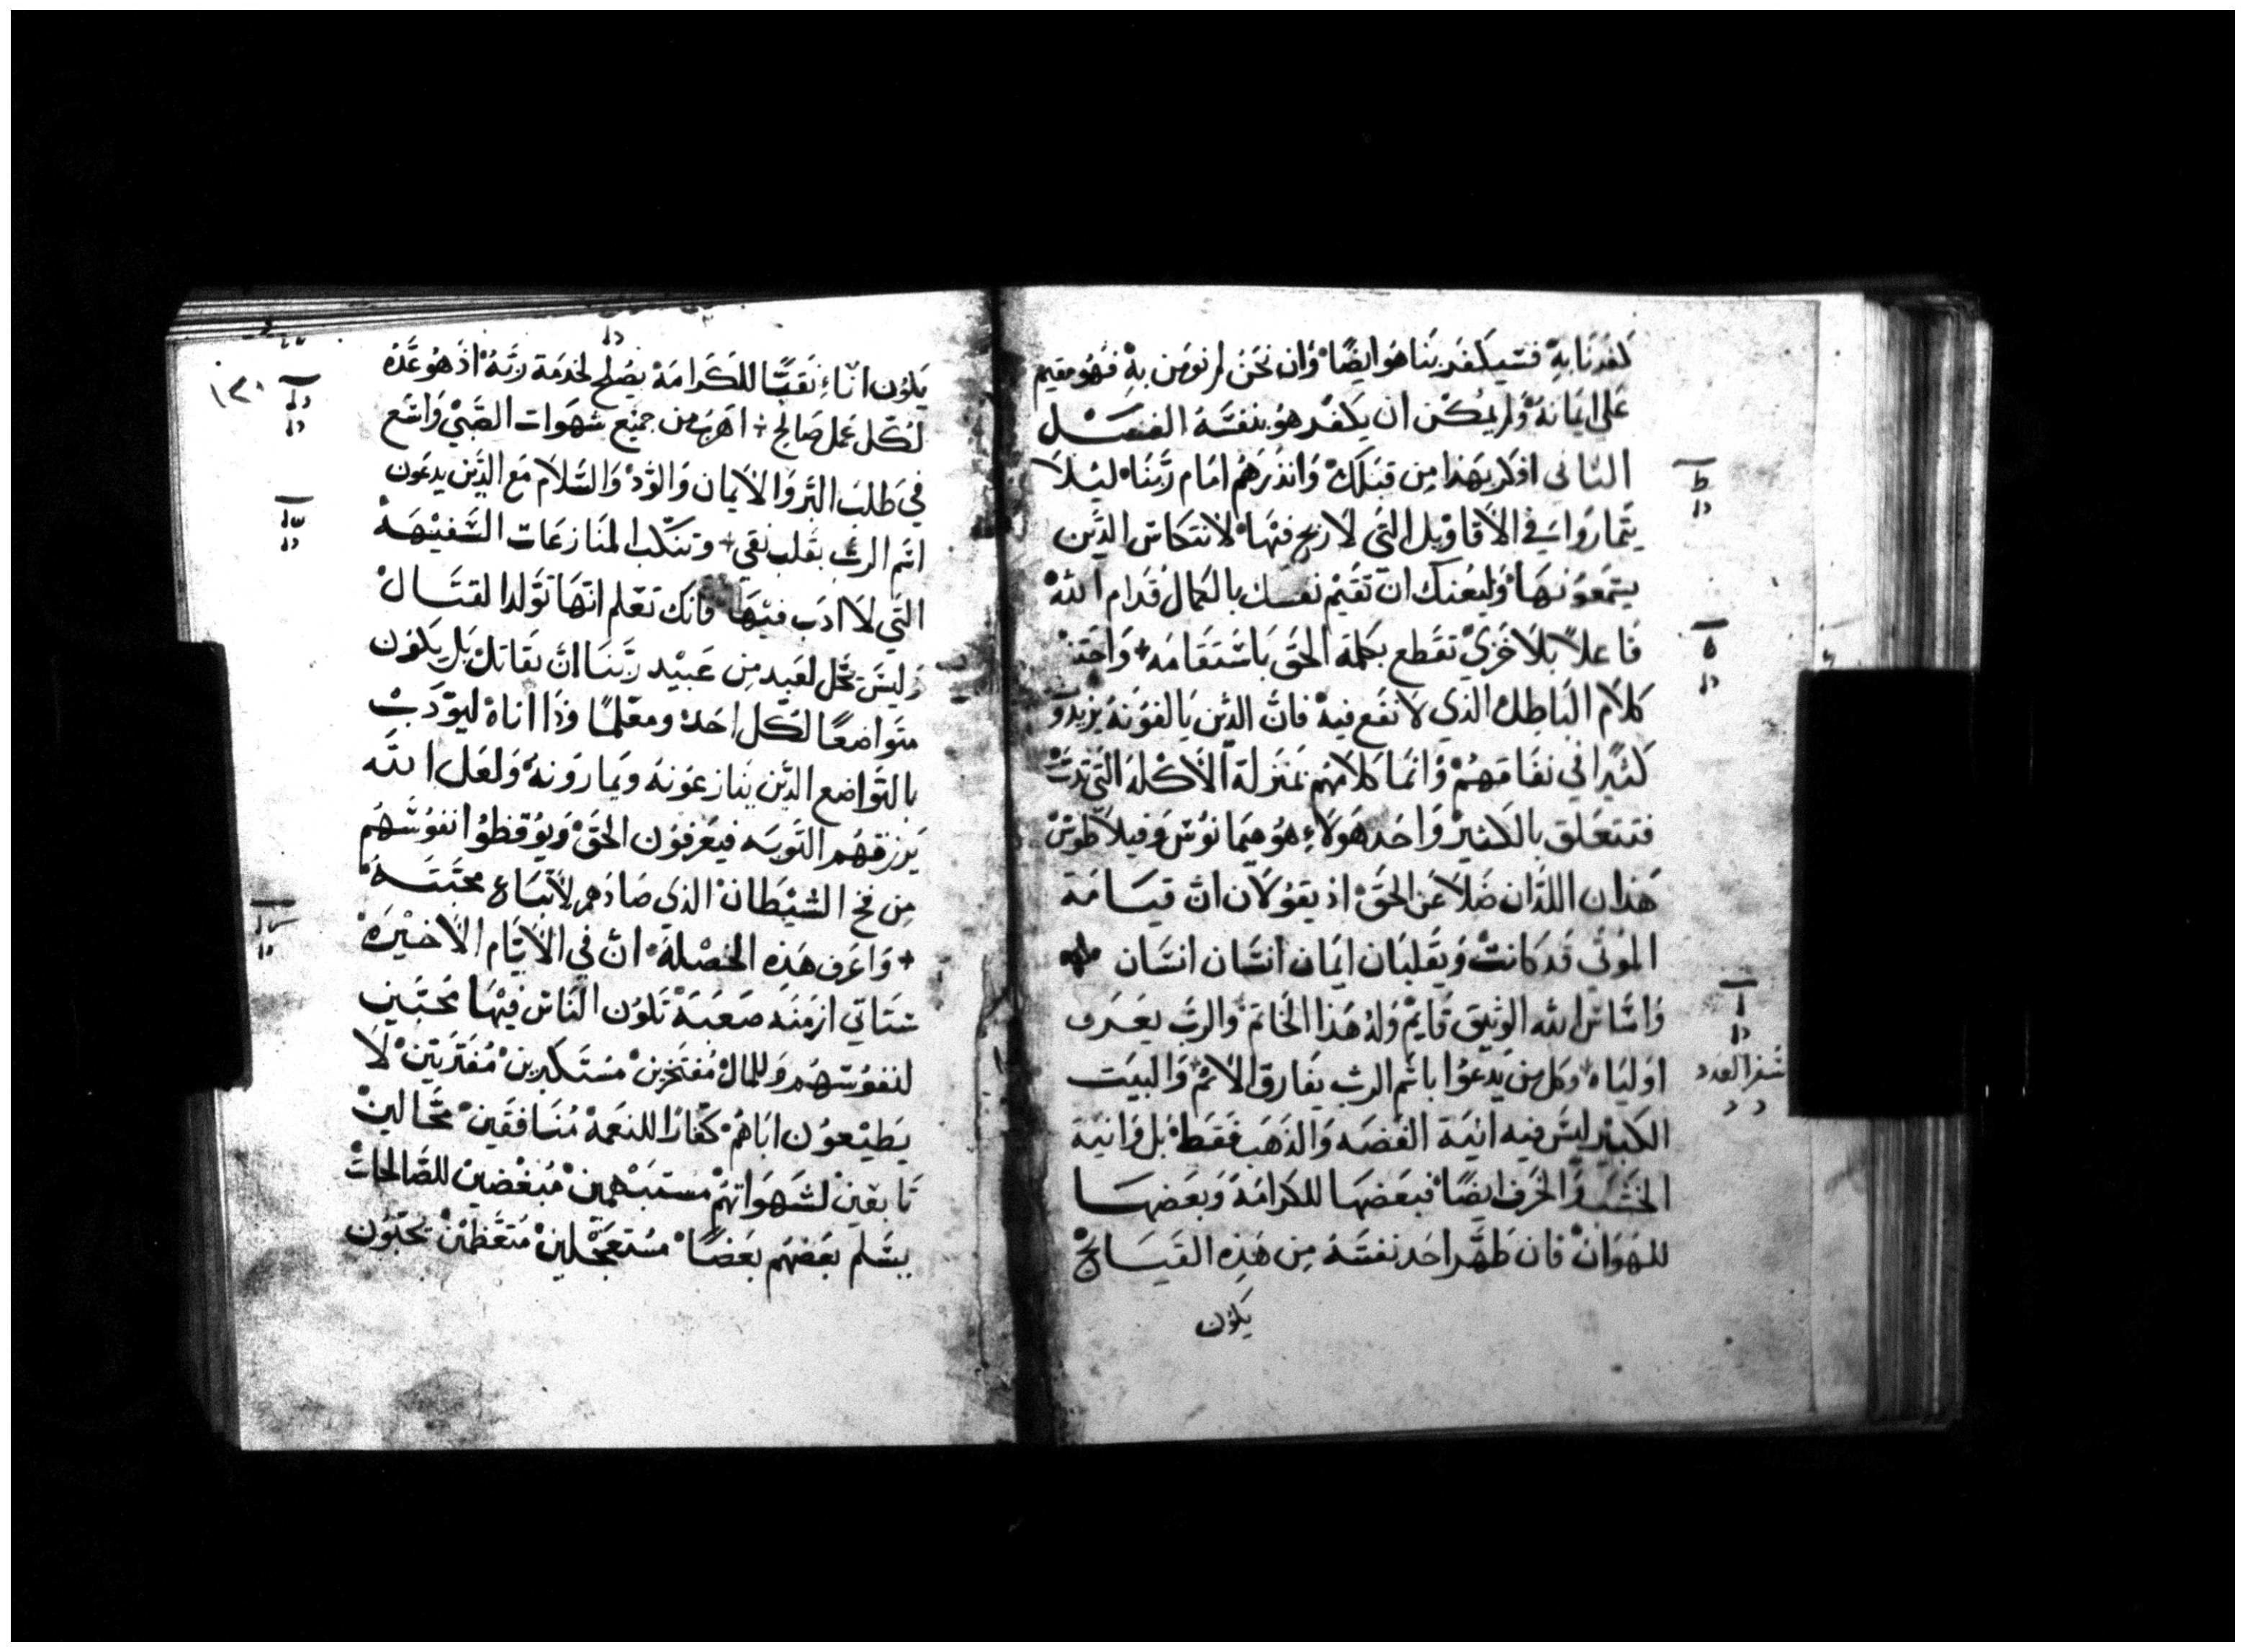 كفرنا به فسيكفر بنا هو ايضًا وان نحن لم نومن به فهو مقيم
على ايمانه ولم يمكن ان يكفر هو بنفسه الفصل
الثانى اذكر بهذا من قبلك وانذرهم امام ربنا ليلا
يتماروا في الاقاويل التي لا ربح فيها لانتكاس الذين
يستمعونها وليعنك ان تقيم نفسك بالكمال قدام الله
فاعلاً بلا خزي تقطع بكلمة الحق باستقامه + واجتنب
كلام الباطل الذي لا نفع فيه فان الذين يالفونه يزيدو
كثيرا في نفاقهم وانما كلامهم بمنزلة الاكله التي تدب
فتتعلق بالكثير واحد هولاء هو هيمانوس وفيلاطوس
هذان اللذان ضلا عن الحق اذ يقولان ان قيامة
الموتي قد كانت ويقلبان ايمان انسان انسان
واساس الله الوثيق قايم وله هذا الخاتم والرب يعرف
اولياه وكل من يدعوا باسم الرب يفارق الاثم والبيت
الكبير ليس فيه انية الفضه والذهب فقط بل وانية
الخشب والخزف ايضًا فبعضها للكرامة وبعضها
للهوان فان طهر احد نفسه من هذه القبايح
يكون
ط
ه
سفر العدد
يكون اناء نقيًا للكرامة يصلح لخدمة ربه اذ هو عده
لكل عمل صالح + اهرب من جميع شهوات الصبي واسع
في طلب البر والايمان والود والسلام مع الذين يدعون
اسم الرب بقلب نقي + وتنكب المنازعات السفيهة
التي لا ادب فيها فانك تعلم انها تولد القتال
وليس يحل لعبد من عبيد ربنا ان يقاتل بل يكون
متواضعًا لكل احد ومعلمًا وذا اناه ليودب
بالتواضع الذين ينازعونه ويمارونه ولعل الله
يرزقهم التوبه فيعرفون الحق ويوقظوا نفوسهم
من فخ الشيطان الذي صادهم لاتباع محبته
+ واعرف هذه الخصلة ان في الايام الاخيرة
ستاتي ازمنه صعبة تكون الناس فيها محبين
لنفوسهم وللمال مفتخرين مستكبرين مفتريين لا
يطيعون اباهم كفارا للنعمة منافقين محالين
تابعين لشهواتهم مستبهمين مبغضين للصالحات
يسلم بعضهم بعضًا مستعجلين متعظمين يحبون
١٣٠